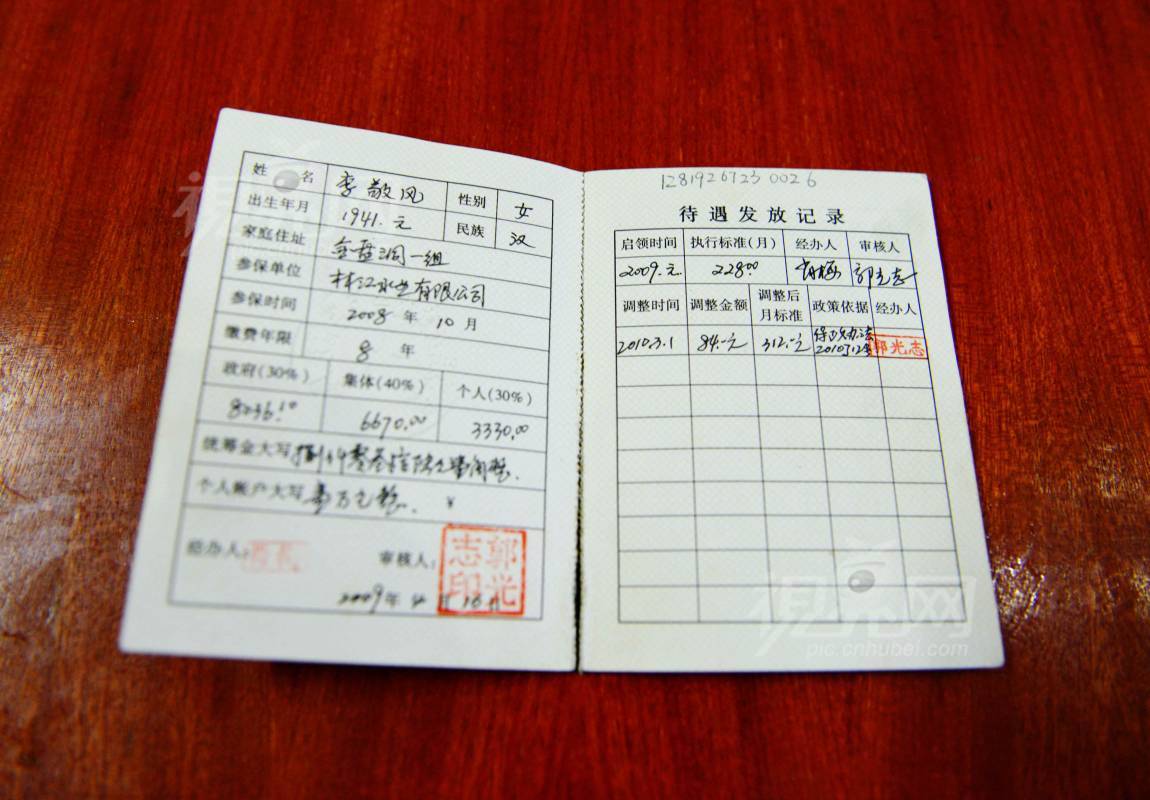 姓名 李敬风 性别 女
出生年月 1941.元 民族 汉
家庭住址 金盘洞一组
参保单位 林江水业有限公司
参保时间 2008 年 10 月
缴费年限 8 年
政府(30%) 集体(40%) 个人(30%)
6670.00 3330.00
统筹金大写
个人账户大写 壹万元整. ¥
经办人: 审核人: 郭光志印
2009年
1281926723 0026
待遇发放记录
启领时间 执行标准(月) 经办人 审核人
2009.元 228.00 郭光志
调整时间 调整金额 调整后月标准 政策依据 经办人
2010.3.1 84.-元 312.-元 郭光志
视界网
pic.cnhubei.com